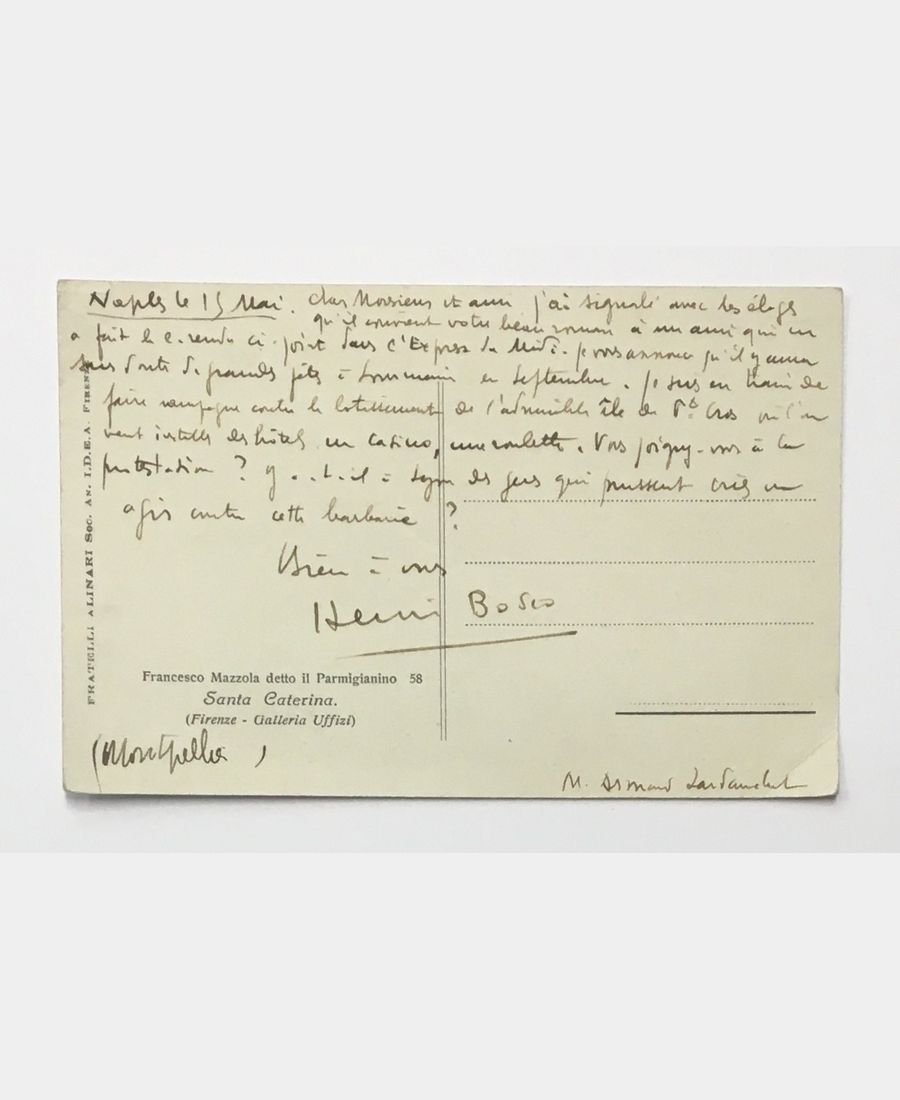 Naples le 15 Mai. Cher Monsieur et ami j'ai signalé avec les éloges
qu'il convient votre beau roman à un ami qui en
a fait le c. rendu ci-joint dans l'Express du Midi. Je vous annonce qu'il y aura
sans doute de grandes fêtes à Lourmarin en Septembre. Je suis en train de
faire campagne contre le lotissement de l'admirable île de Pt Cros où l'on
veut installer des hôtels, un casino, une roulette. Vous joignez-vous à la
protestation ? Y a-t-il à Lyon des gens qui puissent crier ou
agir contre cette barbarie ?
Bien à vous
Henri Bosco
FRATELLI ALINARI Soc. AN. I.D.E.A. FIRENZE
Francesco Mazzola detto il Parmigianino 58
Santa Caterina.
(Firenze - Galleria Uffizi)
(Montpellier )
M. Armand